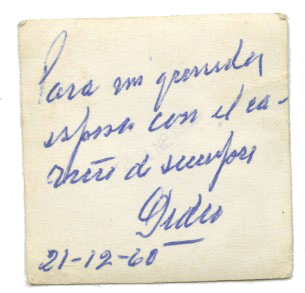 Para mi querida
esposa con el ca-
riño de siempre
Pedro
21-12-60